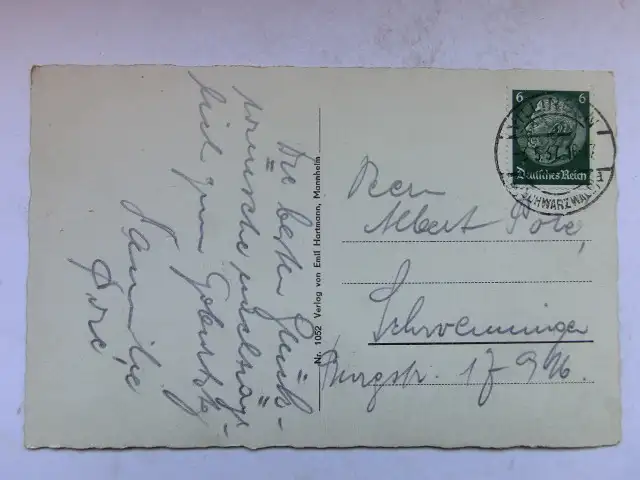 Die besten Glück-
wünsche nachträg-
lich zum Geburtstag
Familie
Nr. 1052 Verlag von Emil Hartmann, Mannheim
6 6
Deutsches Reich
VILLINGEN
SCHWARZWALD
Herrn
Albert
Schwenningen
Burgstr. 17